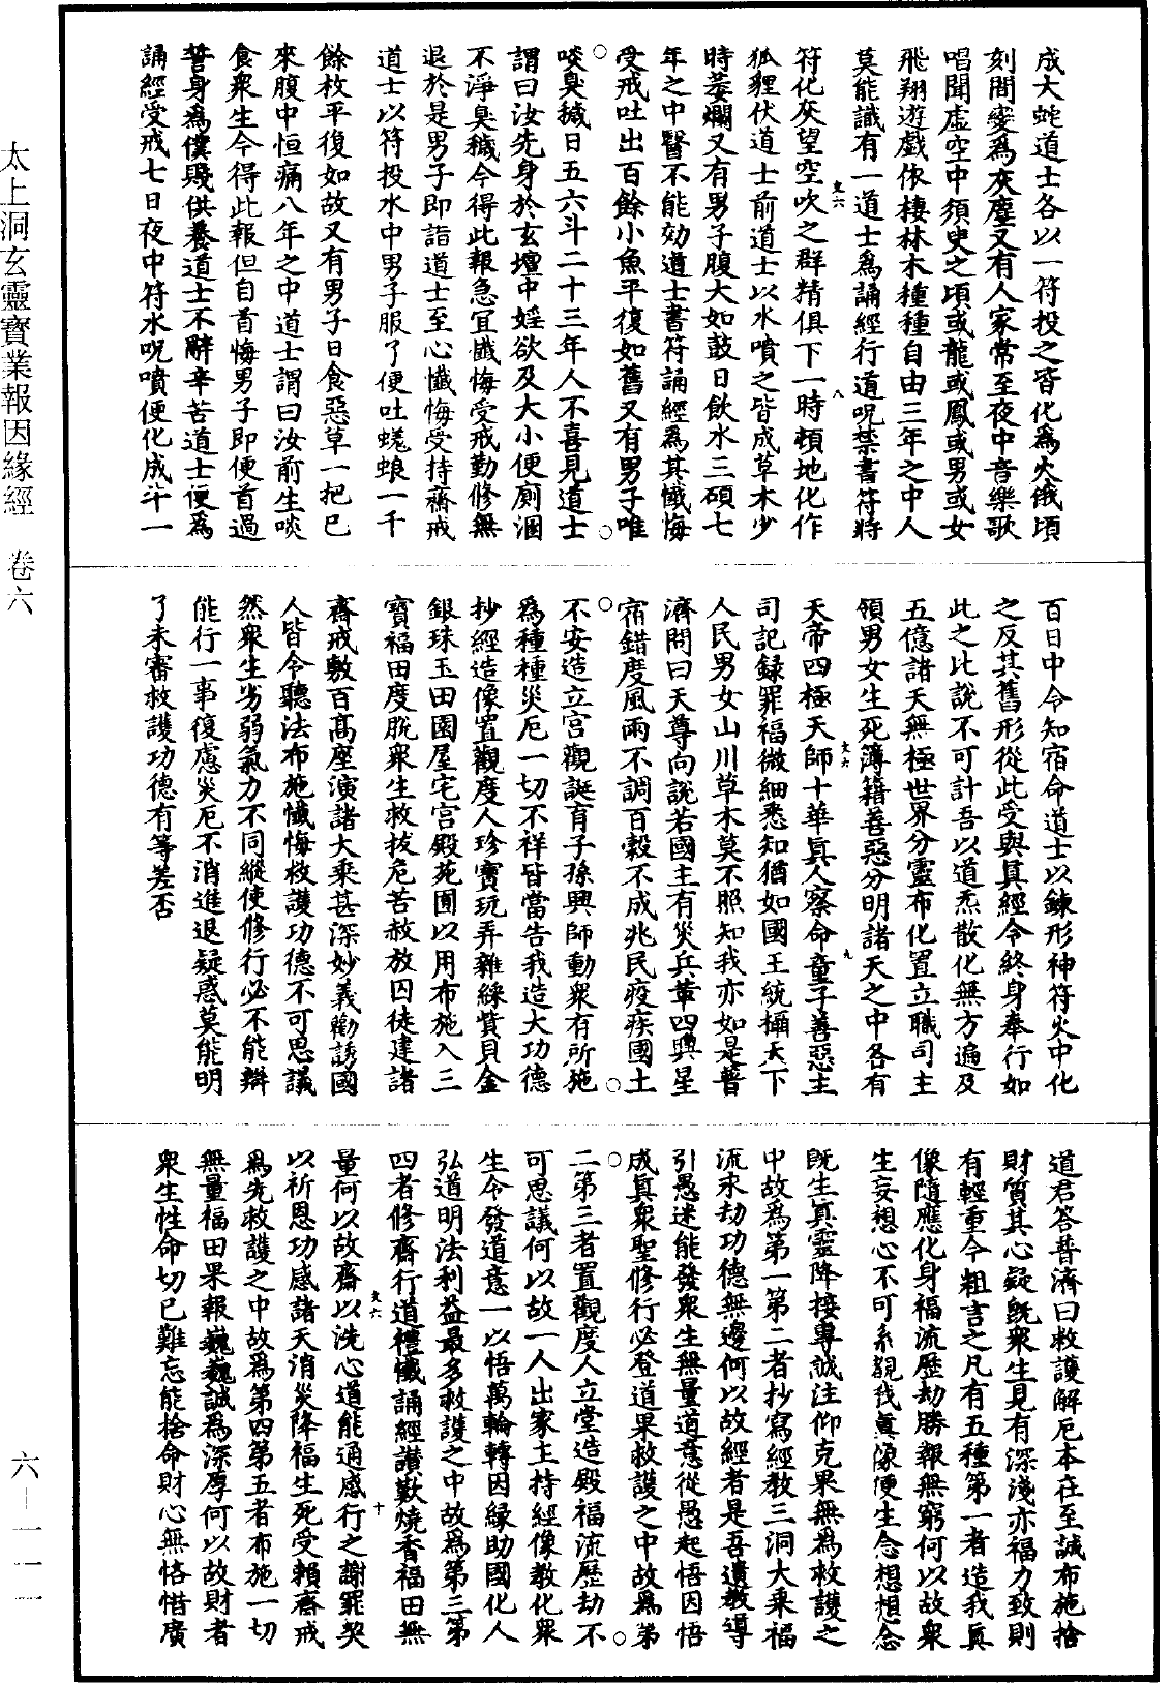 太上洞玄靈寶業報因緣經　卷六
六—一一一
成大蛇道士各以一符投之皆化為火俄頃
刻間變為灰塵又有人家常至夜中音樂歌
唱聞虛空中須臾之頃或龍或鳳或男或女
飛翔遊戲依棲林木種種自由三年之中人
莫能識有一道士為誦經行道呪禁書符將
符化灰望空吹之群精俱下一時頓地化作
狐貍伏道士前道士以水噴之皆成草木少
時萎爛又有男子腹大如鼓日飲水三碩七
年之中醫不能効道士書符誦經為其懺悔
受戒吐出百餘小魚平復如舊又有男子唯
啖臭穢日五六斗二十三年人不喜見道士
謂曰汝先身於玄壇中婬欲及大小便廁溷
不淨臭穢今得此報急宜懺悔受戒勤修無
退於是男子即詣道士至心懺悔受持齋戒
道士以符投水中男子服了便吐蜣蜋一千
餘枚平復如故又有男子日食惡草一把已
來腹中恒痛八年之中道士謂曰汝前生啖
食眾生今得此報但自首悔男子即便首過
誓身為僕賤供養道士不辭辛苦道士便為
誦經受戒七日夜中符水呪噴便化成牛一
百日中令知宿命道士以鍊形神符火中化
之反其舊形從此受與真經令終身奉行如
此之比說不可計吾以道炁散化無方遍及
五億諸天無極世界分靈布化置立職司主
領男女生死簿籍善惡分明諸天之中各有
天帝四極天師十華真人察命童子善惡主
司記錄罪福微細悉知猶如國王統攝天下
人民男女山川草木莫不照知我亦如是普
濟問曰天尊向說若國主有災兵革四興星
宿錯度風雨不調百穀不成兆民疫疾國土
不安造立宮觀誕育子孫興師動眾有所施
為種種災厄一切不祥皆當告我造大功德
抄經造像置觀度人珍寶玩弄雜綵貲貝金
銀珠玉田園屋宅宮殿苑囿以用布施入三
寶福田度脫眾生救拔危苦赦放囚徒建諸
齋戒敷百高座演諸大乘甚深妙義勸誘國
人皆令聽法布施懺悔救護功德不可思議
然眾生劣弱氣力不同縱使修行必不能辦
能行一事復慮災厄不消進退疑惑莫能明
了未審救護功德有等差否
道君答普濟曰救護解厄本在至誠布施捨
財質其心疑既眾生見有深淺亦福力致則
有輕重今粗言之凡有五種第一者造我真
像隨應化身福流歷劫勝報無窮何以故眾
生妄想心不可系覩我真像便生念想想念
既生真靈降接專誠注仰克果無為救護之
中故為第一第二者抄寫經教三洞大乘福
流來劫功德無邊何以故經者是吾遺教導
引愚迷能發眾生無量道意從愚起悟因悟
成真眾聖修行必登道果救護之中故為第
二第三者置觀度人立堂造殿福流歷劫不
可思議何以故一人出家主持經像教化眾
生令發道意一以悟萬輪轉因緣助國化人
弘道明法利益最多救護之中故為第三第
四者修齋行道禮懺誦經讚歎燒香福田無
量何以故齋以洗心道能通感行之謝罪契
以祈恩功感諸天消災降福生死受賴齋戒
為先救護之中故為第四第五者布施一切
無量福田果報巍巍誠為深厚何以故財者
眾生性命切已難忘能捨命財心無悋惜廣